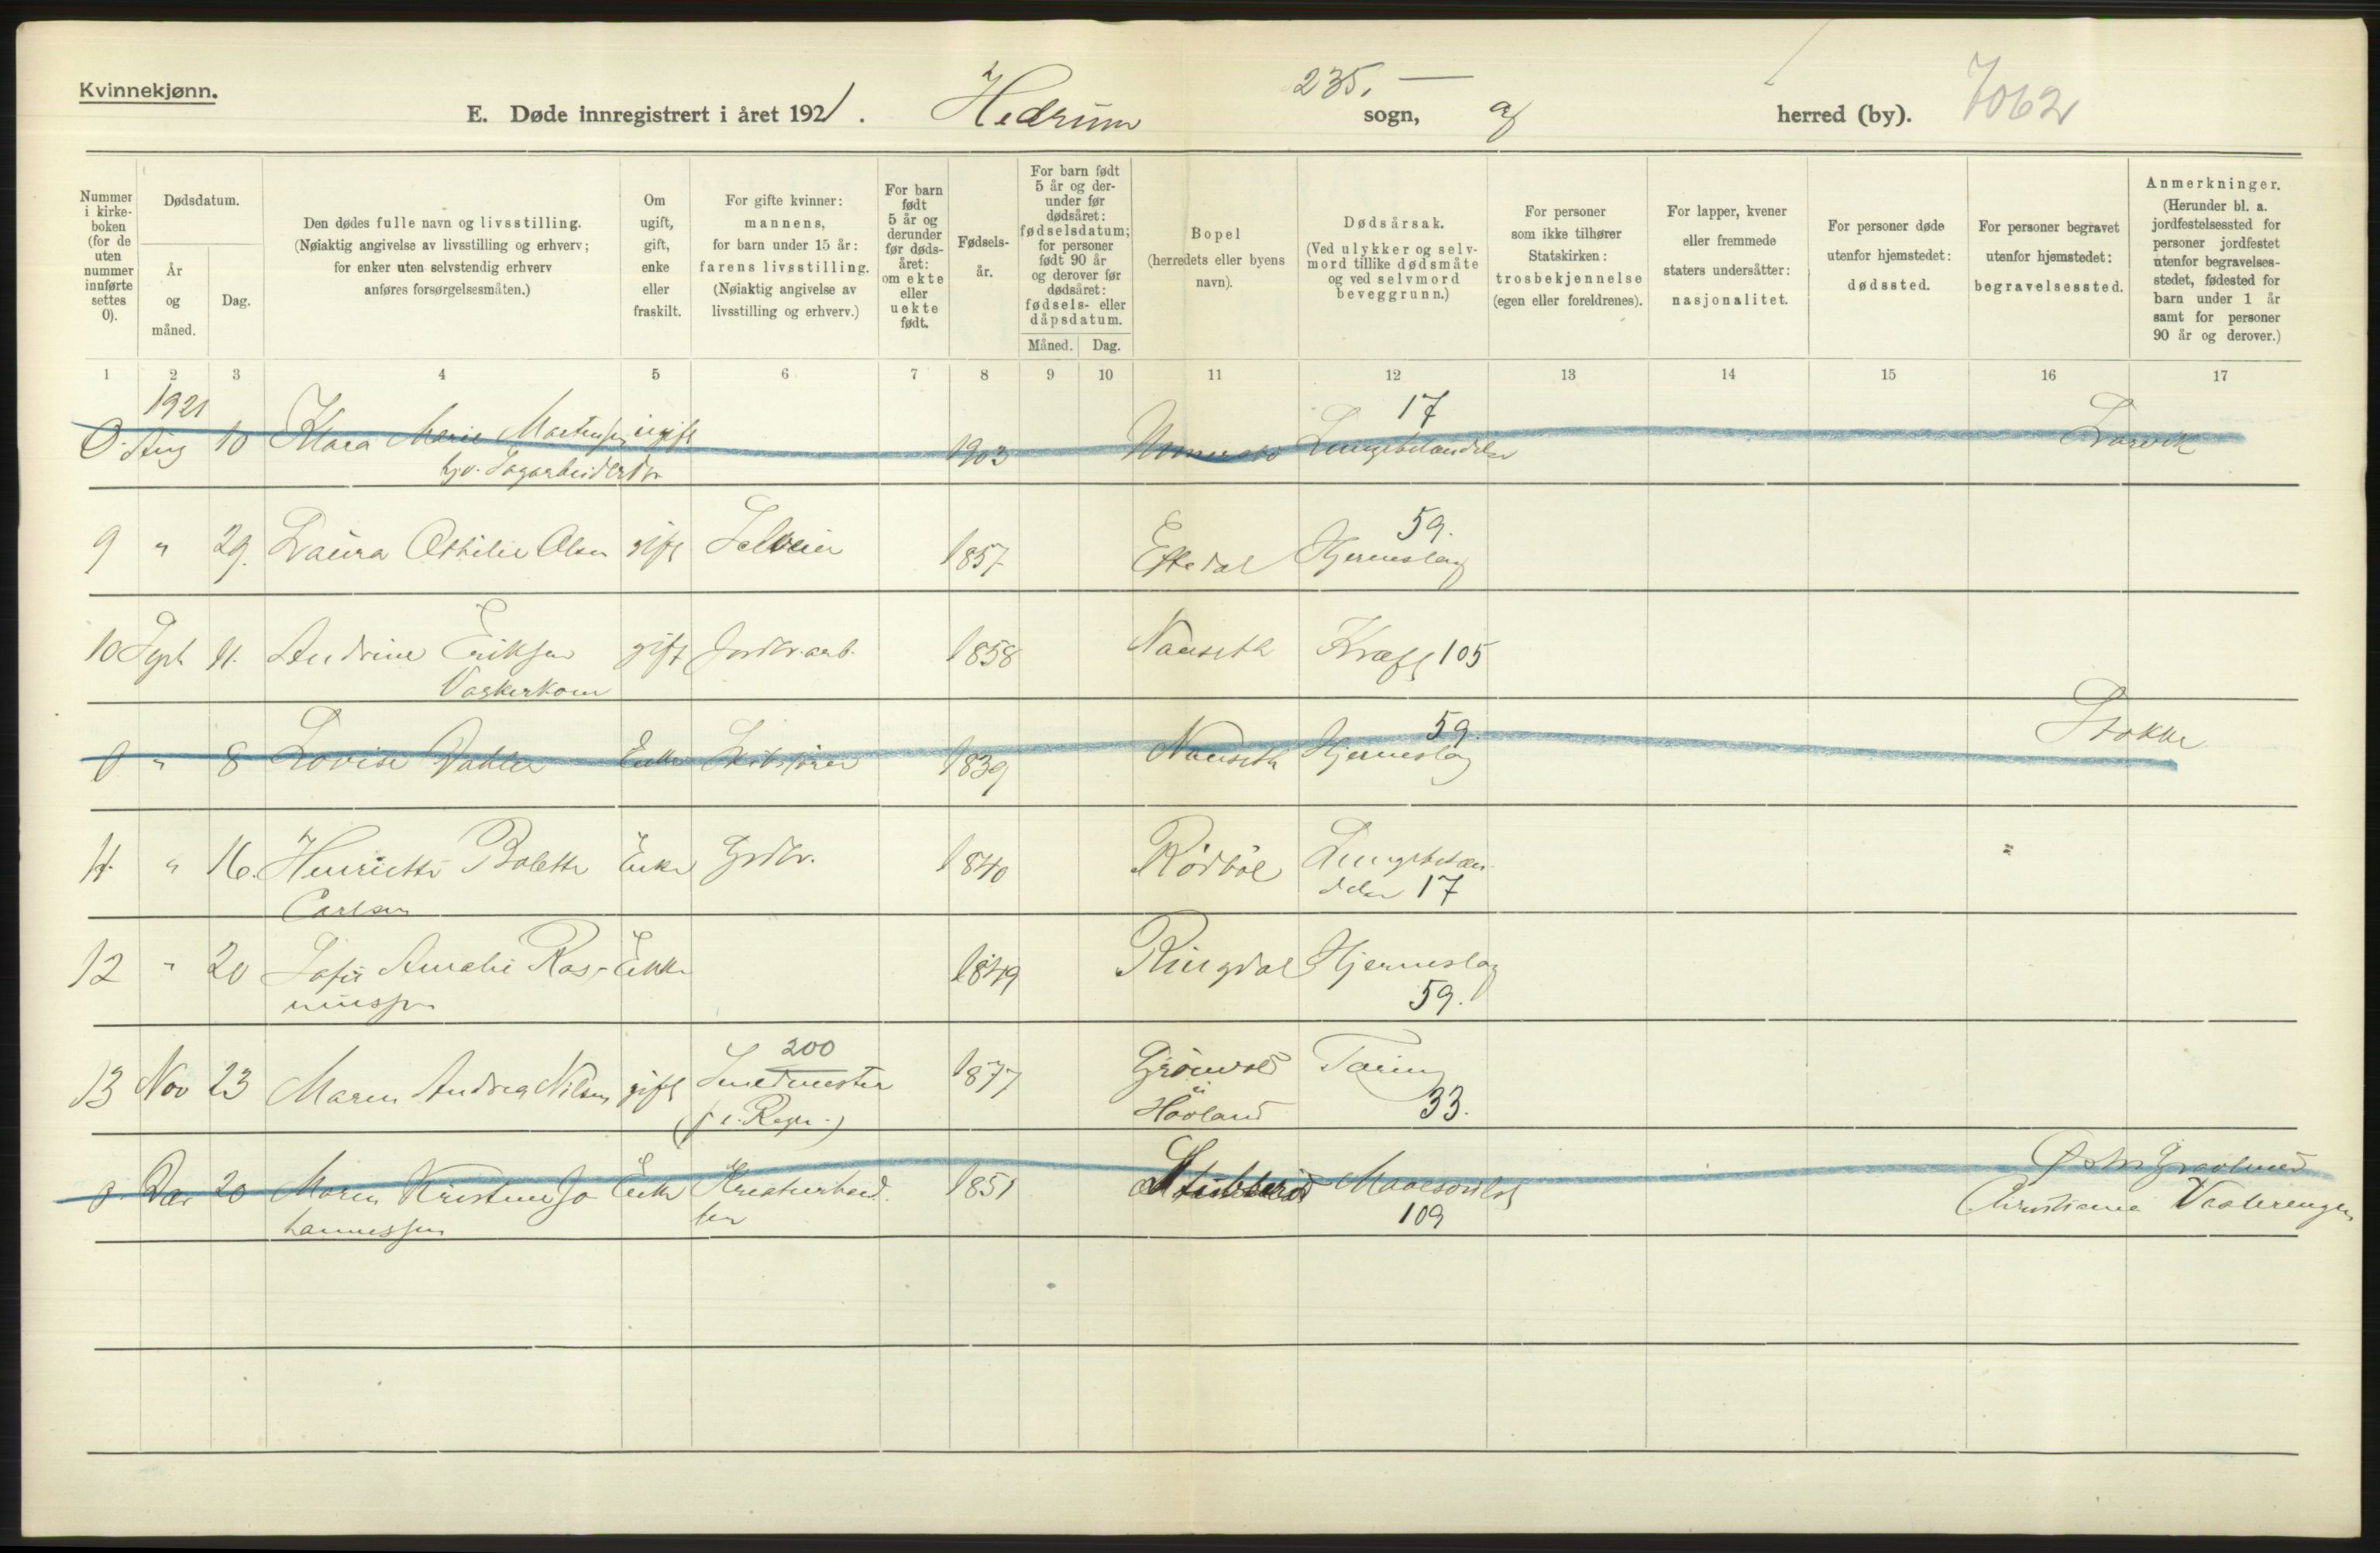 Kvinnekjønn.
E. Døde innregistrert i året 1921. Hedrum 235,— sogn, herred (by). 7062
Nummer i kirke-boken (for de uten nummer innførte settes 0).
Dødsdatum.
År og måned.
Dag.
Den dødes fulle navn og livsstilling.
(Nøiaktig angivelse av livsstilling og erhverv;
for enker uten selvstendig erhverv
anføres forsørgelsesmåten.)
Om ugift, gift, enke eller fraskilt.
For gifte kvinner:
mannens,
for barn under 15 år:
farens livsstilling.
(Nøiaktig angivelse av
livsstilling og erhverv.)
For barn født 5 år og derunder før døds-året: om ekte eller uekte født.
Fødsels-år.
For barn født 5 år og der-under før dødsåret: fødselsdatum; for personer født 90 år og derover før dødsåret: fødsels- eller dåpsdatum.
Måned. Dag.
Bopel
(herredets eller byens
navn).
Dødsårsak.
(Ved ulykker og selv-
mord tillike dødsmåte
og ved selvmord
beveggrunn.)
For personer
som ikke tilhører
Statskirken:
trosbekjennelse
(egen eller foreldrenes).
For lapper, kvener
eller fremmede
staters undersåtter:
nasjonalitet.
For personer døde
utenfor hjemstedet:
dødssted.
For personer begravet
utenfor hjemstedet:
begravelsessted.
Anmerkninger.
(Herunder bl. a.
jordfestelsessted for
personer jordfestet
utenfor begravelses-
stedet, fødested for
barn under 1 år
samt for personer
90 år og derover.)
1 2 3 4 5 6 7 8 9 10 11 12 13 14 15 16 17
1921 17
0. Aug 10 Klara Marie Martinsen ugift 1903 Lungebetændelse Larvik
59.
9 " 29. Laura Othilie Olsen gift Selveier 1857. Eftedal Hjerneslag
10 Sept 11. Andrine Eriksen gift Jordbr.arb. 1858 Nanseth Kræft 105
Vaskerkone
59.
0 " 8 Lovise Dahler Enke 1839 Nanseth Hjerneslag Stokke
11. " 16. Henriette Bolette Enke Grdbr. 1840 Rødbøl Lungebetæn-
Carlsen delse 17
12 " 20 Sofie Amalie Ras- Enke 1849 Ringdal Hjerneslag
mussen 59.
200
13 Nov 23 Maren Andrea Nilsen gift Smedmester 1877 Grønvold Tæring
i
Hovland 33.
0. Dec 20 Maren Kristine Jo Enke Kreaturhand. 1851 Stubberød Mavesvulst Østre Gravlund
hannessen ler 109 Christiania Vaalerengen